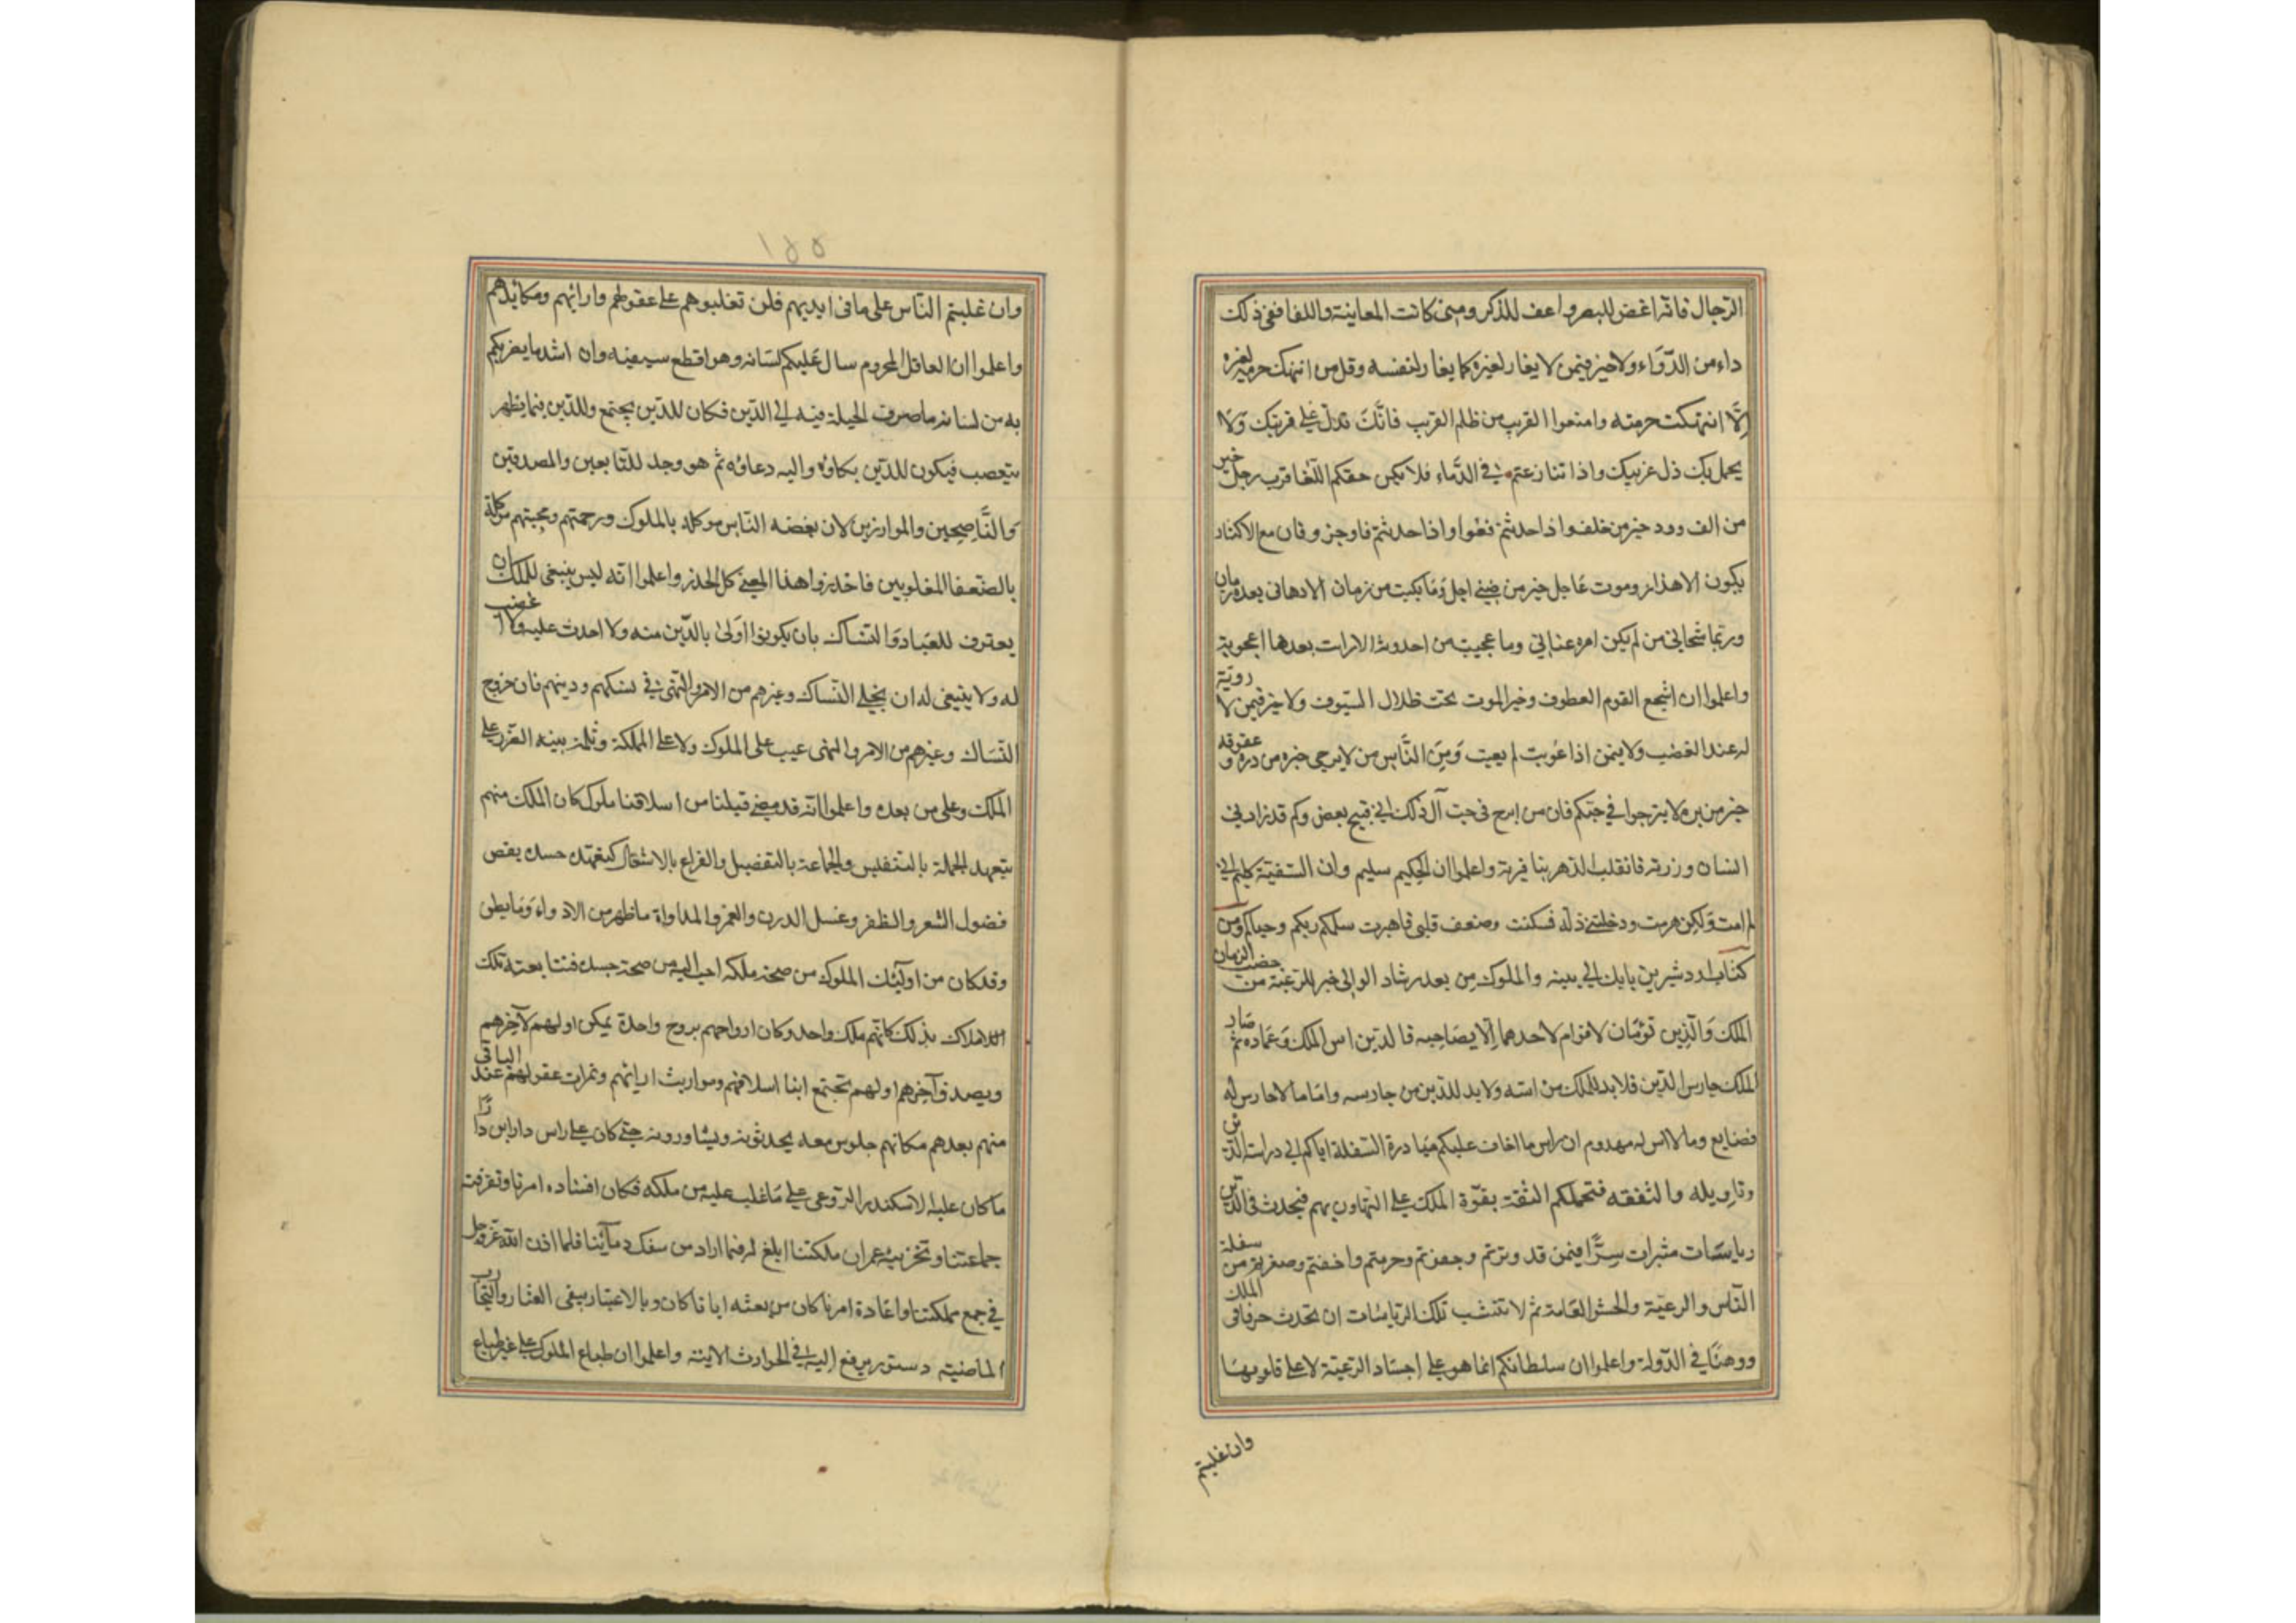 الرجال فانه اغض للبصر واعف للذكر ومتى كانت المعاينة واللقا ففى ذلك
داء من الدواء ولا خير فيمن لا يغار لغيره كما يغار لنفسه وقل من انتهك حرمة لغيره
الا انتهكت حرمته وامنعوا القريب من ظلم القريب فانك تدل على قريبك ولا
يحمل بك ذل غريبك واذا تنازعتم فى الدماء فلا يكن حقكم اللقا فرب رجل خير
من الف وود خير من خلف واذا حدثتم فعوا واذا حدثتم فاوجزوا فان مع الاكثار
يكون الاهذار وموت عاجل خير من ضنى اجل وما بكيت من زمان الا دهانى بعده زمان
وربما شجانى من لم يكن امره عنانى وما عجبت من احدوثة الا رات بعدها اعجوبة
واعلموا ان اشجع القوم العطوف وخير الموت تحت ظلال السيوف ولا خير فيمن لا روية
له عند الغضب ولا يمن اذا عوتب لم يعتب ومن الناس من لا يرجى خيره من دره وعقوقه
خير من بره لا يترجوا فى حبكم فان من ابرح فى حب آل ذلك الى قبيح بعض وكم قد زارنى
انسان وزرته فانقلب الدهر بنا فبرته واعلموا ان الحكيم سليم وان السفيه كليم انى
لم امت ولكن هرمت ودخلتنى ذلة فسكنت وضعف قلبى فاهترت سلمكم ربكم وحياكم ومن
كتاب اردشير بن بابك الى بنيه والملوك من بعده رشاد الوالى خير للرعية من خصب الزمان
الملك والدين توءمان لا قوام لاحدهما الا بصاحبه فالدين اس الملك وعماده ثم صار
الملك حارس الدين فلا بد للملك من اسه ولا بد للدين من حارسه واما ما لا حارس له
فضايع وما لا اس له مهدوم ان راس ما اخاف عليكم مبادرة السفلة اياكم الى دراسة الدين
وتاويله والتفقه فتحملكم الثقة بقوة الملك على التهاون بهم فيحدث فى الدين
رياسات مستسرات سرا فيمن قد وترتم وجفوتم وحرمتم واخفتم وصغرتم من سفلة
الناس والرعية والحشو العامة ثم لا تنشب تلك الرياسات ان تحدث خرقا فى الملك
ووهنا فى الدولة واعلموا ان سلطانكم انما هو على اجساد الرعية لا على قلوبها
وان غلبتم
١٥٥
وان غلبتم الناس على ما فى ايديهم فلن تغلبوهم على عقولهم وارائهم ومكايدهم
واعلموا ان العاقل المحروم سال عليكم لسانه وهو اقطع سيفيه وان اشد ما يضربكم
به من لسانه ما صرف الحيلة فيه الى الدين فكان للدين يحتج وللدين فيما يظهر
يتعصب فيكون للدين بكاؤه واليه دعاؤه ثم هو وجد للتابعين والمصدقين
والناصحين والموازرين لان بغضه الناس موكلة بالملوك ورحمتهم ومحبتهم موكلة
بالضعفا المغلوبين فاحذروا هذا المعنى كل الحذر واعلموا انه ليس ينبغى للملك ان
يعترف للعباد والنساك بان يكونوا اولى بالدين منه ولا احدث عليه ولا اغضب
له ولا ينبغى له ان يخلى النساك وغيرهم من الامر والنهى فى نسكهم ودينهم فان خروج
النساك وغيرهم من الامر والنهى عيب على الملوك وعلى المملكة وثلمة بينة الضرر على
الملك وعلى من بعده واعلموا انه قد مضى قبلنا من اسلافنا ملوك كان الملك منهم
يتعهد الجملة بالتفتيش والجماعة بالتفضيل والفراغ بالاشغال كتعهده جسده بقص
فضول الشعر والظفر وغسل الدرن والغمر والمداواة ما ظهر من الادواء وما بطن
وقد كان من اولئك الملوك من صحة ملكه احب اليه من صحة جسده فتتابعت تلك
الاملاك بذلك كانهم ملك واحد وكان ارواحهم بروح واحدة يمكن اولهم لآخرهم
ويصدق آخرهم اولهم تجتمع ابنا اسلافهم ومواريث ارائهم وثمرات عقولهم عند الباقى
منهم بعدهم مكانهم جلوس معه يحدثونه ويشاورونه حتى كان على راس دارا بن دارا
ما كان عليه الاسكندر الرومى على ما غلب عليه من ملكه فكان افساده امرنا وتفرقته
جماعتنا وتخريبه عمران ملكتنا ابلغ له فيما اراد من سفك دمآئنا فلما اذن الله عز وجل
فى جمع مملكتنا واعادة امرنا كان من بعثه ايانا ما كان وبالاعتبار يبقى العثار والتجارب
الماضية دستور يرفع اليه فى الحوادث الاتية واعلموا ان طباع الملوك على غير طباع